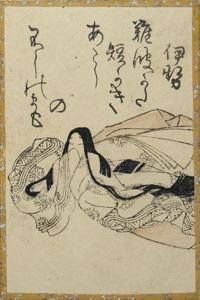 伊勢
難波かた
短かき
あし
の
ふしのまも